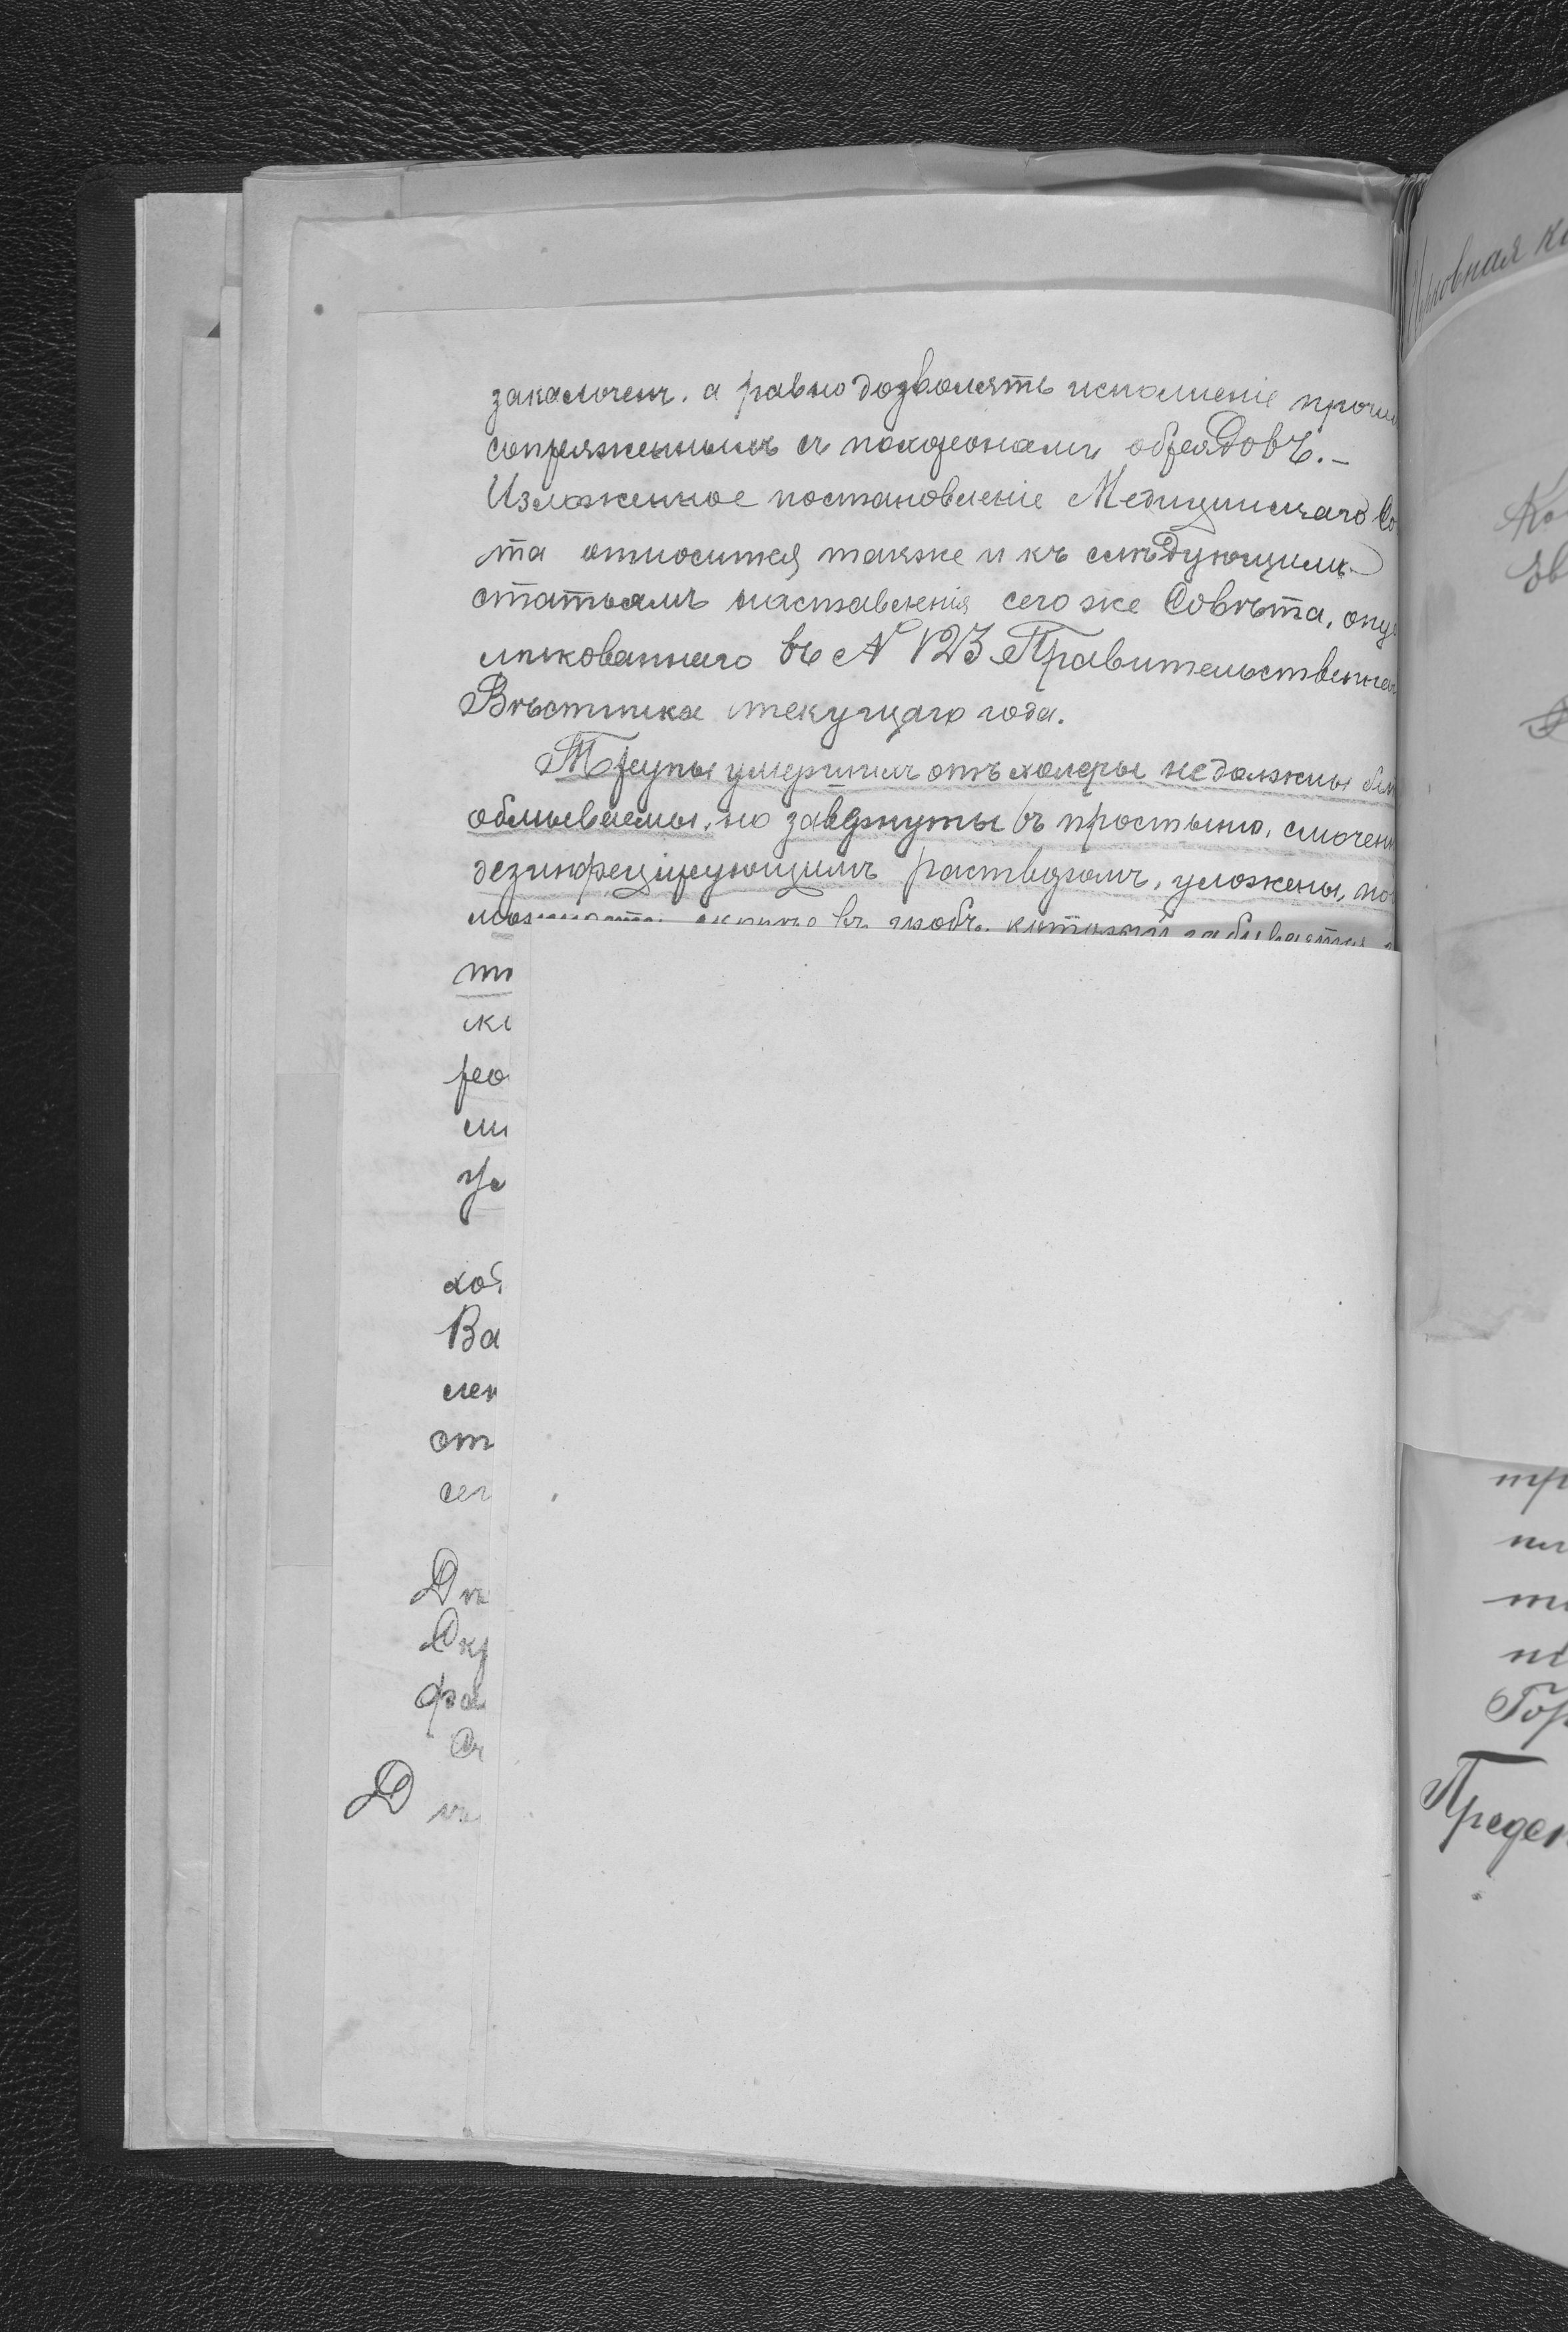 а равно дозволять исполненіе
сопряженныхъ съ похоронами обрядовъ.-
Изложенное постановленіе Медицинскаго Со
та относится также и къ слѣдующимъ
статьямъ наставленія сего же Совѣта, опу
ликованнаго въ N 123 Правительственна
Вѣстника текущаго года.
Трупы умершихъ отъ холеры не должны бы
обмываемы, но завернуты въ простыню, смочен
дезинфецирующимъ растворомъ, уложены, по
въ гробъ, который забивается
рео
хо
Ва
лен
от
сег
Дѣ
Окр
Дѣ
Ко
тр
Гор
Предс